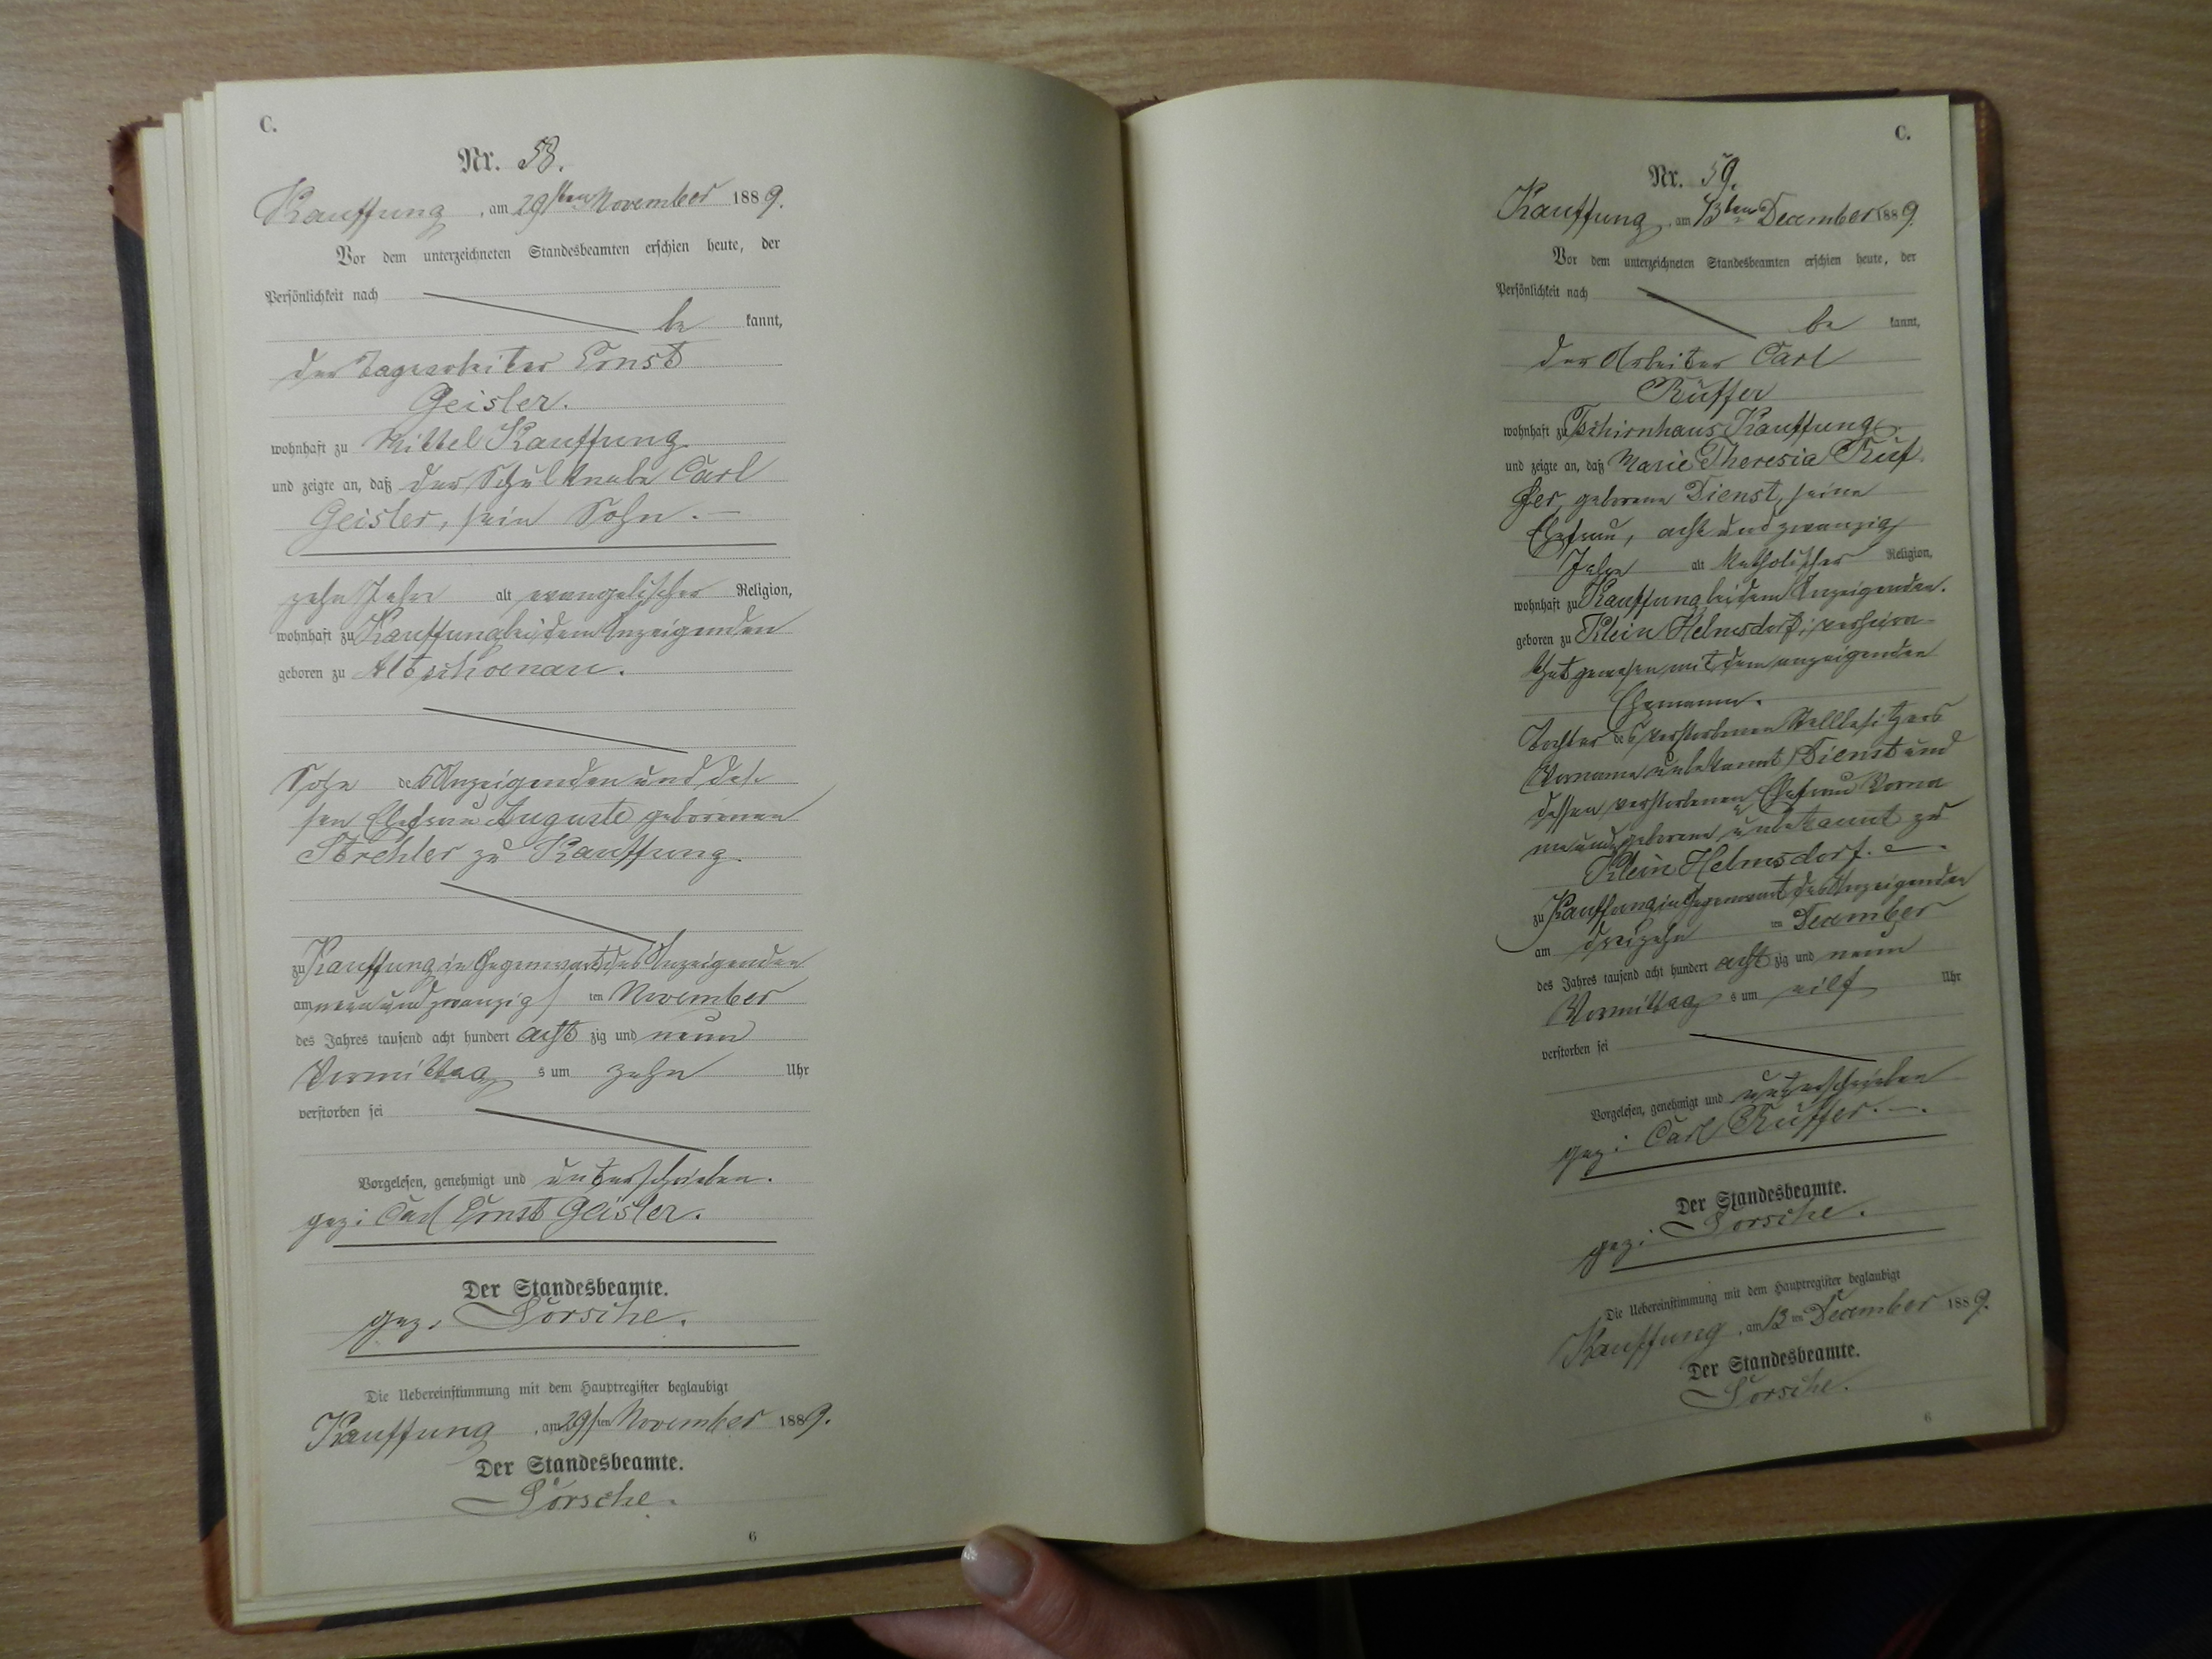 C.
Nr. 58.
Kauffung, am 29sten November 1889.
Vor dem unterzeichneten Standesbeamten erschien heute, der
Persönlichkeit nach
be kannt,
der Tagearbeiter Ernst
Geisler.
wohnhaft zu Mittel Kauffung
und zeigte an, daß der Schulknabe Carl
Geisler, sein Sohn. —
zehn Jahr alt evangelischer Religion,
wohnhaft zu Kauffung bei dem Anzeigenden
geboren zu Altschoenau.
Sohn des Anzeigenden und des-
sen Ehefrau Auguste geborenen
Strehler zu Kauffung.
zu Kauffung in Gegenwart des Anzeigenden
am neun und zwanzigsten November
des Jahres tausend acht hundert acht zig und neun
Vormittag s um zehn Uhr
verstorben sei
Vorgelesen, genehmigt und unterschrieben.
gez: Carl Ernst Geisler.
Der Standesbeamte.
gez. Sorsche.
Die Uebereinstimmung mit dem Hauptregister beglaubigt
Kauffung, am 29sten November 1889.
Der Standesbeamte.
Sorsche.
6
C.
Nr. 59.
Kauffung, am 13ten December 1889.
Vor dem unterzeichneten Standesbeamten erschien heute, der
Persönlichkeit nach
be kannt,
der Arbeiter Carl
Rüffer
wohnhaft zu Tschirnhaus Kauffung
und zeigte an, daß Marie Theresia Rüf-
fer, geborene Dienst, seine
Ehefrau, acht und zwanzig
Jahre alt katholischer Religion,
wohnhaft zu Kauffung bei dem Anzeigenden.
geboren zu Klein Helmsdorf, verheira-
thet gewesen mit dem anzeigenden
Ehemann.
Tochter des verstorbenen Stellbesitzers
Vorname unbekannt Dienst und
dessen verstorbenen Ehefrau Vorna
me und geborene unbekannt zu
Klein Helmsdorf. —.
zu Kauffung in Gegenwart des Anzeigenden
am dreizehn ten December
des Jahres tausend acht hundert acht zig und neun
Vormittag s um eilf Uhr
verstorben sei
Vorgelesen, genehmigt und unterschrieben
gez: Carl Rüffer. —.
Der Standesbeamte.
gez. Sorsche.
Die Uebereinstimmung mit dem Hauptregister beglaubigt
Kauffung, am 13 ten December 1889.
Der Standesbeamte.
Sorsche.
6